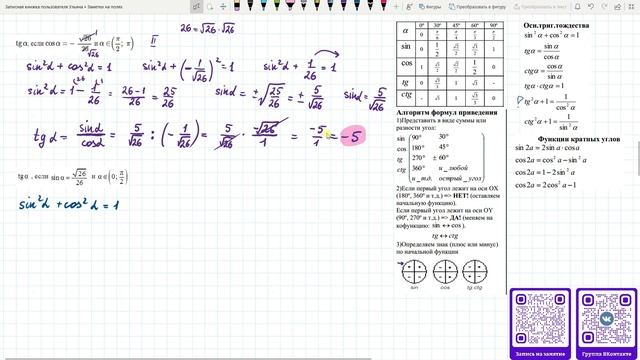 Записная книжка пользователя Ульяна > Заметки на полях
Рисование
Фигуры
Фигуру
26=√26·√26
tg α, если cos α = −√26/26 и α∈(π/2; π) II
√26
sin²α+cos²α=1 sin²α+(−1/√26)²=1 sin²α+1/26=1
sin²α=1−1/26=26−1/26=25/26 sinα=±√25/√26=±5/√26 sinα=5/√26
tgα=sinα/cosα=5/√26:(−1/√26)=5/√26·−√26/1=−5/1=−5
tg α, если sin α=√26/26 и α∈(0; π/2)
sin²α+cos²α=1
α 0° 30° 45° 60° 90°
0 π/6 π/4 π/3 π/2
sin 0 1/2 √2/2 √3/2 1
cos 1 √3/2 √2/2 1/2 0
tg 0 √3/3 1 √3 -
ctg - √3 1 √3/3 0
Алгоритм формул приведения
1)Представить в виде суммы или
разности угол:
sin 90° 30°
cos 180° 45°
tg 270° ± 60°
ctg 360° и _ любой
и _ т.д. острый _ угол
2)Если первый угол лежит на оси OX
(180°, 360° и т.д.) => НЕТ! (оставляем
начальную функцию).
Если первый угол лежит на оси OY
(90°, 270° и т.д.) => ДА! (меняем на
кофункцию: sin ↔ cos).
tg ↔ ctg
3)Определяем знак (плюс или минус)
по начальной функции
sin cos tg ctg
Осн.триг.тождества
sin²α+cos²α=1
tgα=sinα/cosα
ctgα=cosα/sinα
tgα·ctgα=1
tg²α+1=1/cos²α
ctg²α+1=1/sin²α
Функции кратных углов
sin 2α=2sinα·cosα
cos2α=cos²α−sin²α
cos2α=1−2sin²α
cos2α=2cos²α−1
Запись на занятие
Группа ВКонтакте